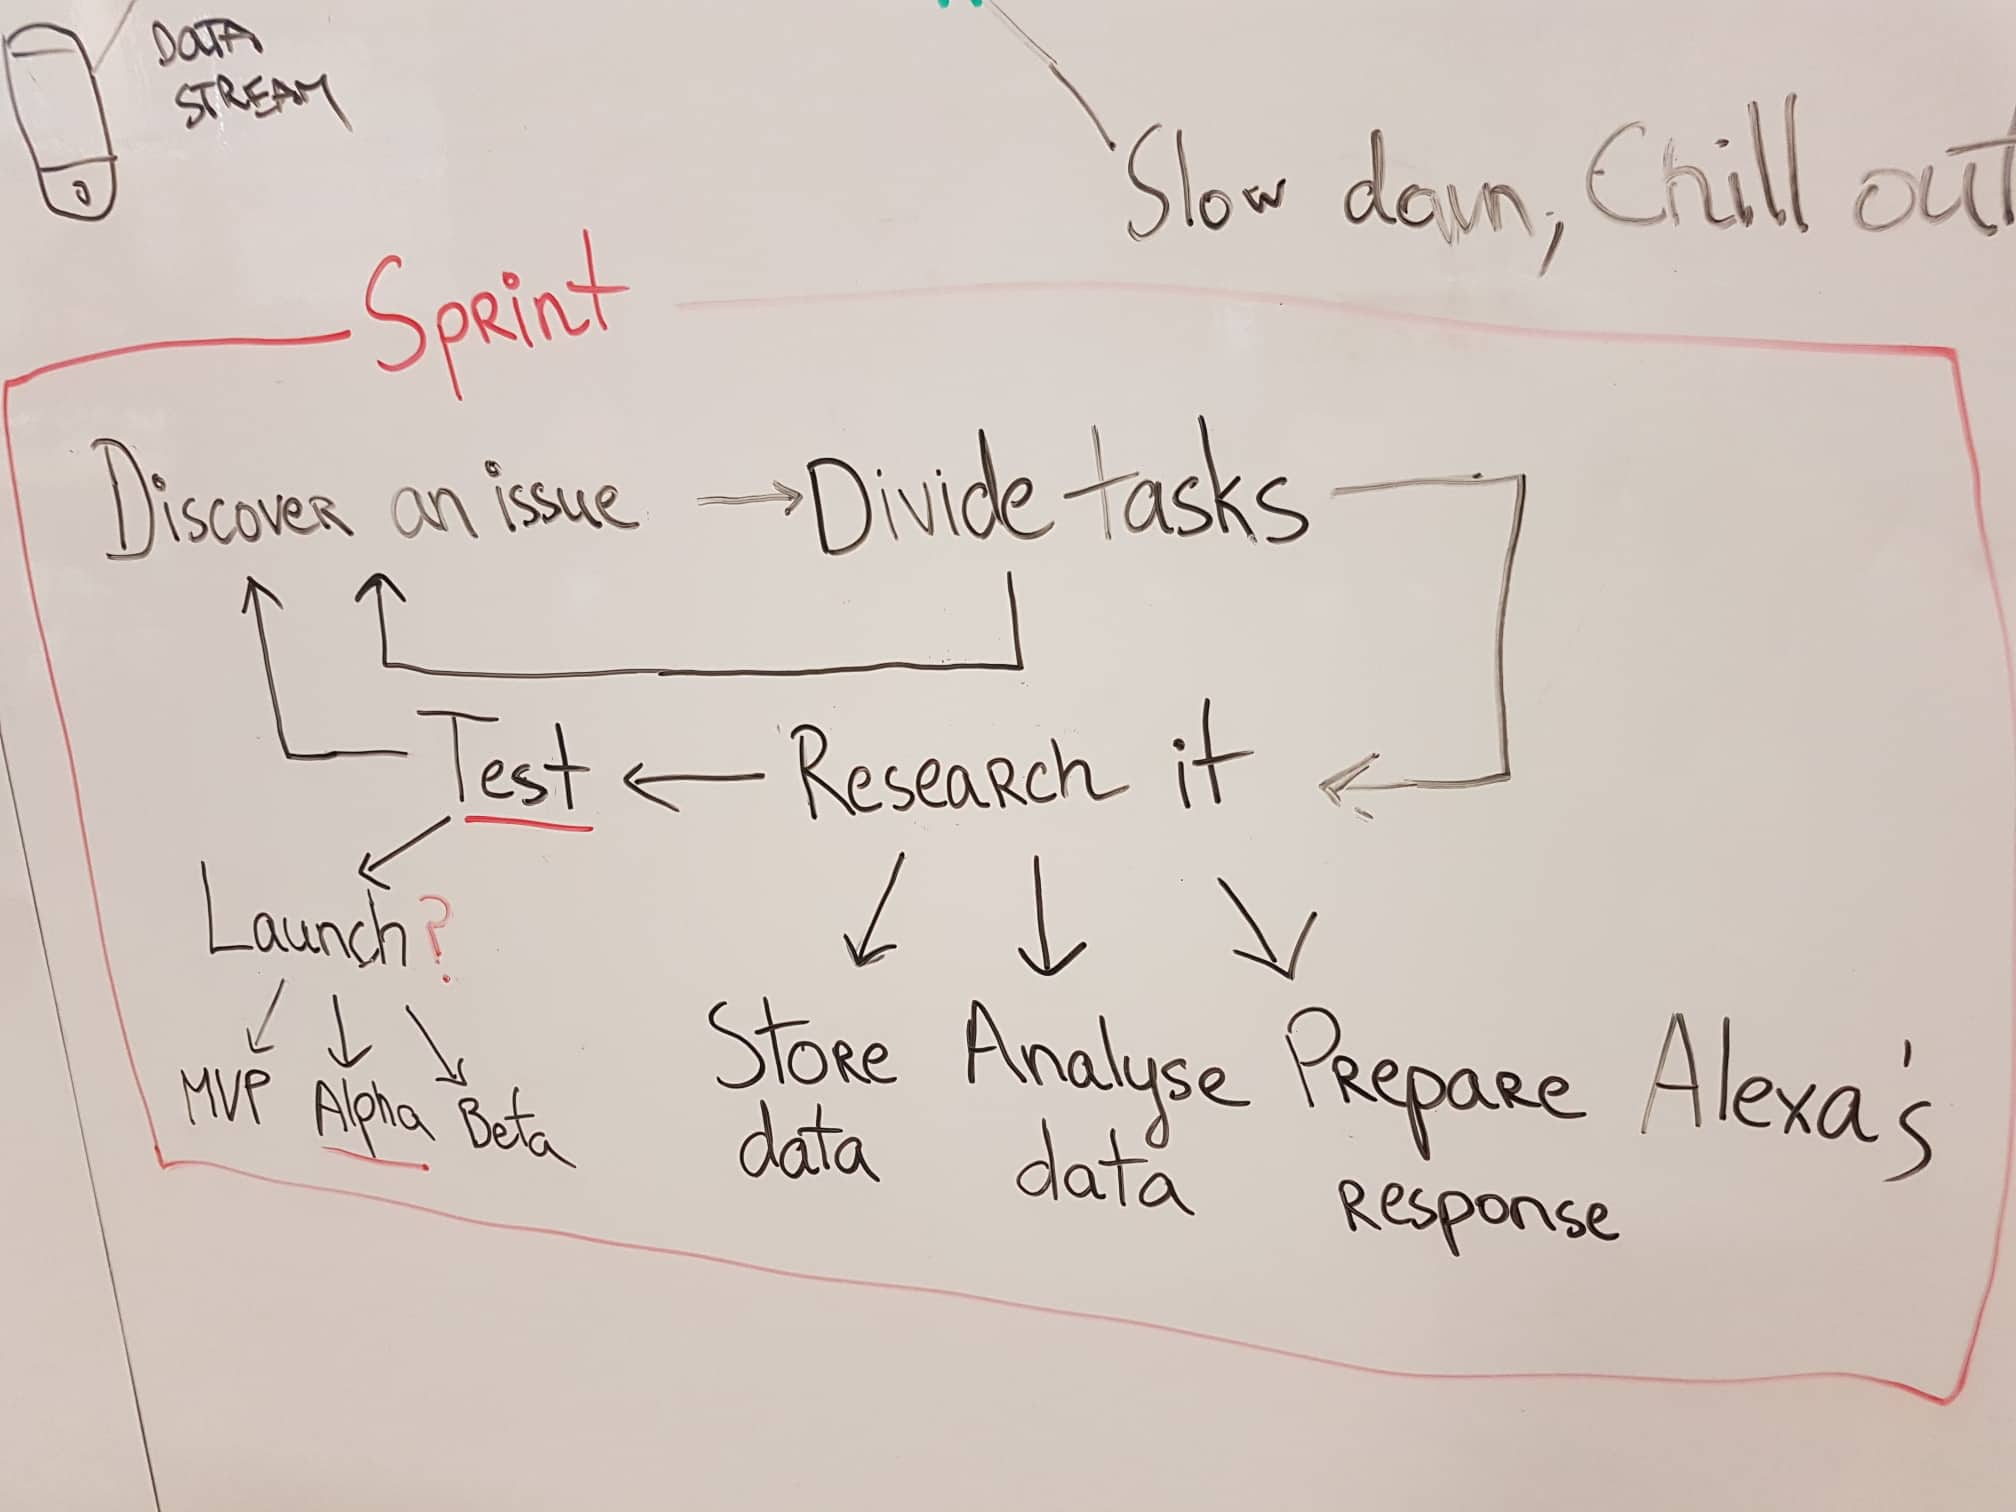 DATA
STREAM
Slow down, Chill out
Sprint
Discover an issue
Divide tasks
Test
Research it
Launch?
MVP
Alpha
Beta
Store
data
Analyse
data
Prepare Alexa's
response